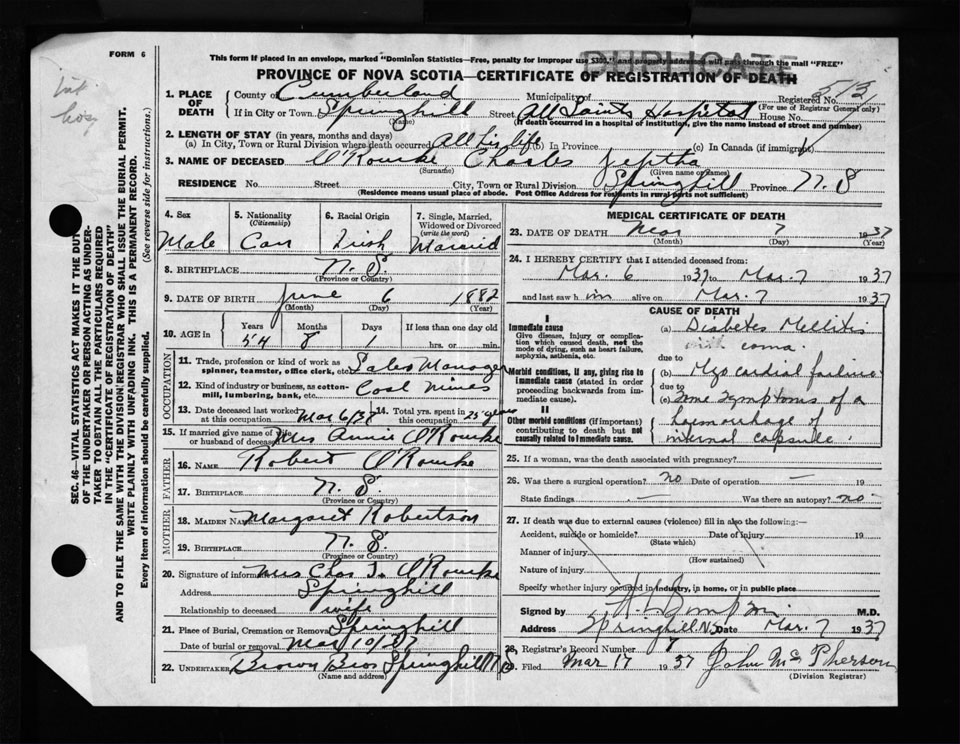 FORM 6
DUPLICATE
This form if placed in an envelope, marked "Dominion Statistics—Free, penalty for improper use $300," and properly addressed will pass through the mail "FREE"
PROVINCE OF NOVA SCOTIA—CERTIFICATE OF REGISTRATION OF DEATH
Registered No.
(For use of Registrar General only)
1. PLACE OF DEATH
County of Cumberland Municipality of
If in City or Town. Springhill Street. All Saints Hospital House No.
(Name) (If death occurred in a hospital of institution, give the name instead of street and number)
2. LENGTH OF STAY (in years, months and days)
(a) In City, Town or Rural Division where death occurred All his life (b) In Province (c) In Canada (if immigrant)
3. NAME OF DECEASED O'Rourke Charles Jeptha
(Surname) (Given name or names)
RESIDENCE No. Street City, Town or Rural Division Springhill Province N. S
(Residence means usual place of abode. Post Office Address for Residents in rural parts not sufficient)
SEC. 46—VITAL STATISTICS ACT MAKES IT THE DUTY
OF THE UNDERTAKER OR PERSON ACTING AS UNDER-
TAKER TO OBTAIN ALL THE PARTICULARS REQUIRED
IN THE "CERTIFICATE OF REGISTRATION OF DEATH"
AND TO FILE THE SAME WITH THE DIVISION REGISTRAR WHO SHALL ISSUE THE BURIAL PERMIT.
WRITE PLAINLY WITH UNFADING INK. THIS IS A PERMANENT RECORD.
Every item of information should be carefully supplied. (See reverse side for instructions.)
4. Sex Male
5. Nationality (Citizenship) Can
6. Racial Origin Irish
7. Single, Married, Widowed or Divorced (write the word) Married
8. BIRTHPLACE N. S.
(Province or Country)
9. DATE OF BIRTH June 6 1882
(Month) (Day) (Year)
10. AGE in Years Months Days If less than one day old
54 8 1 hrs. or min.
OCCUPATION
11. Trade, profession or kind of work as spinner, teamster, office clerk, etc. Sales Manager
12. Kind of industry or business, as cotton-mill, lumbering, bank, etc. Coal Mines
13. Date deceased last worked at this occupation Mar 6/37 14. Total yrs. spent in this occupation 25 years
15. If married give name of wife or husband of deceased Mrs Annie O'Rourke
FATHER
16. NAME Robert O'Rourke
17. BIRTHPLACE N. S.
(Province or Country)
MOTHER
18. MAIDEN NAME Margaret Robertson
19. BIRTHPLACE N. S.
(Province or Country)
20. Signature of informant Mrs Chas J. O'Rourke
Address Springhill
Relationship to deceased wife
21. Place of Burial, Cremation or Removal Springhill
Date of burial or removal Mar 10/37
22. UNDERTAKER Brown Bros Springhill N.S
(Name and address)
MEDICAL CERTIFICATE OF DEATH
23. DATE OF DEATH Mar 7 1937
(Month) (Day) (Year)
24. I HEREBY CERTIFY that I attended deceased from:
Mar. 6 1937 to Mar. 7 1937
and last saw him alive on Mar. 7 1937
CAUSE OF DEATH
I
Immediate cause
Give disease, injury or complication which caused death, not the mode of dying, such as heart failure, asphyxia, asthenia, etc.
(a) Diabetes Mellitis
with coma.
due to
Morbid conditions, if any, giving rise to immediate cause (stated in order proceeding backwards from immediate cause).
(b) Myocardial failure
due to
(c) Some symptoms of a
haemorrhage of
internal capsule.
II
Other morbid conditions (if important) contributing to death but not causally related to immediate cause.
25. If a woman, was the death associated with pregnancy?
26. Was there a surgical operation? no Date of operation — 19
State findings — Was there an autopsy? no
27. If death was due to external causes (violence) fill in also the following:—
Accident, suicide or homicide? Date of injury 19
(State which)
Manner of injury
(How sustained)
Nature of injury
Specify whether injury occured in industry, in home, or in public place
Signed by M.D.
Address Springhill N.S Date Mar. 7 1937
28. Registrar's Record Number
29. Filed Mar 17 1937 John McPherson
(Division Registrar)